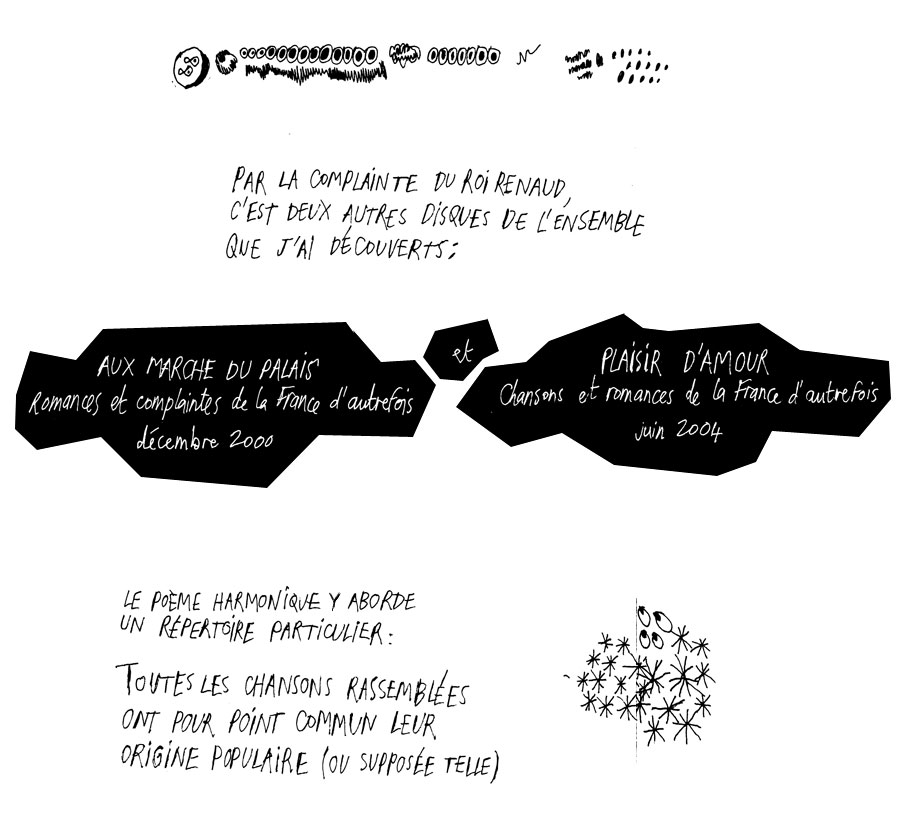 PAR LA COMPLAINTE DU ROI RENAUD,
C'EST DEUX AUTRES DISQUES DE L'ENSEMBLE
QUE J'AI DÉCOUVERTS :
AUX MARCHE DU PALAIS
Romances et complaintes de la France d'autrefois
décembre 2000
et
PLAISIR D'AMOUR
Chansons et romances de la France d'autrefois
juin 2004
LE POÈME HARMONIQUE Y ABORDE
UN RÉPERTOIRE PARTICULIER :
TOUTES LES CHANSONS RASSEMBLÉES
ONT POUR POINT COMMUN LEUR
ORIGINE POPULAIRE (OU SUPPOSÉE TELLE)